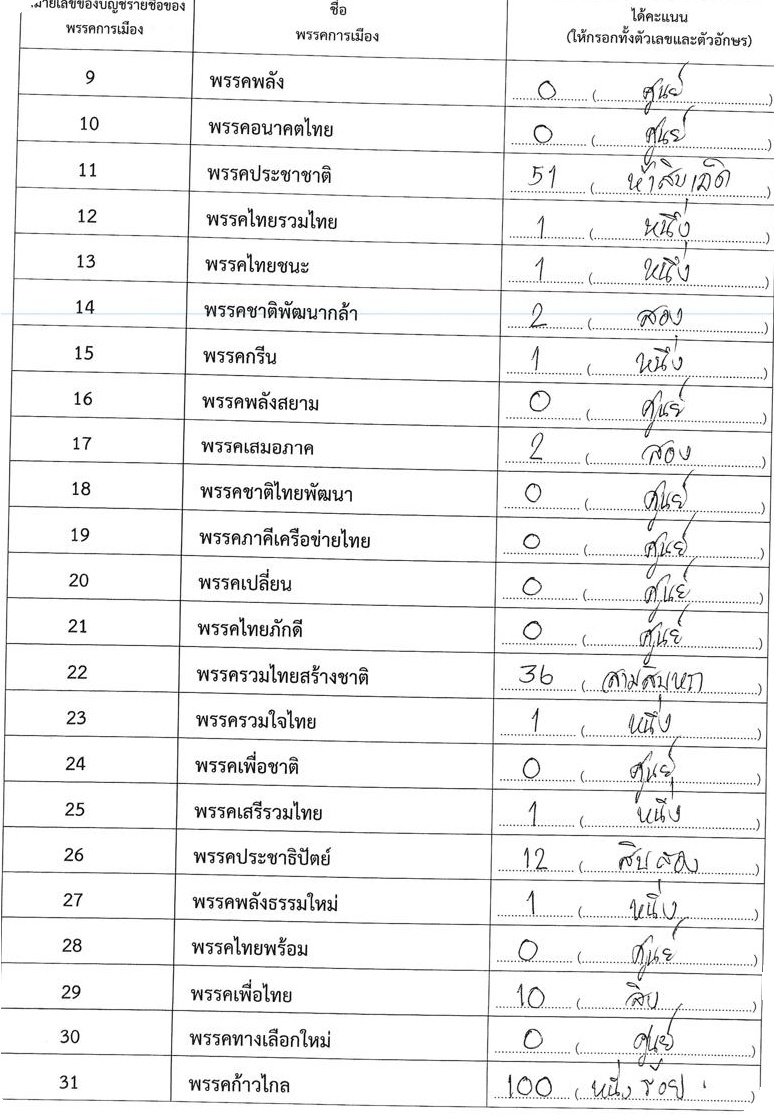 หมายเลขของบัญชีรายชื่อของ
พรรคการเมือง
ชื่อ
พรรคการเมือง
ได้คะแนน
(ให้กรอกทั้งตัวเลขและตัวอักษร)
9 พรรคพลัง 0 (ศูนย์)
10 พรรคอนาคตไทย 0 (ศูนย์)
11 พรรคประชาชาติ 51 (ห้าสิบเอ็ด)
12 พรรคไทยรวมไทย 1 (หนึ่ง)
13 พรรคไทยชนะ 1 (หนึ่ง)
14 พรรคชาติพัฒนากล้า 2 (สอง)
15 พรรคกรีน 1 (หนึ่ง)
16 พรรคพลังสยาม 0 (ศูนย์)
17 พรรคเสมอภาค 2 (สอง)
18 พรรคชาติไทยพัฒนา 0 (ศูนย์)
19 พรรคภาคีเครือข่ายไทย 0 (ศูนย์)
20 พรรคเปลี่ยน 0 (ศูนย์)
21 พรรคไทยภักดี 0 (ศูนย์)
22 พรรครวมไทยสร้างชาติ 36 (สามสิบหก)
23 พรรครวมใจไทย 1 (หนึ่ง)
24 พรรคเพื่อชาติ 0 (ศูนย์)
25 พรรคเสรีรวมไทย 1 (หนึ่ง)
26 พรรคประชาธิปัตย์ 12 (สิบสอง)
27 พรรคพลังธรรมใหม่ 1 (หนึ่ง)
28 พรรคไทยพร้อม 0 (ศูนย์)
29 พรรคเพื่อไทย 10 (สิบ)
30 พรรคทางเลือกใหม่ 0 (ศูนย์)
31 พรรคก้าวไกล 100 (หนึ่งร้อย)